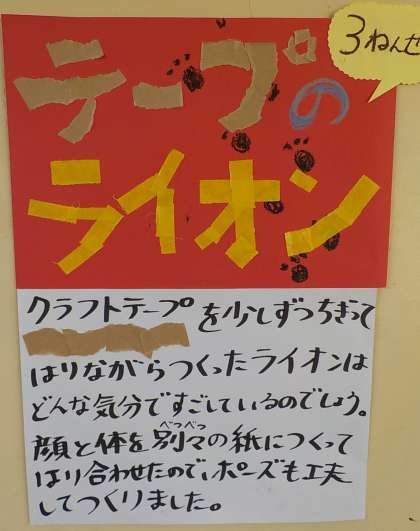 3ねんせ
テープの
ライオン
クラフトテープを少しずつちぎって
はりながらつくったライオンは
どんな気分ですごしているのでしょう。
顔と体を別々の紙につくって
べつべつ
はり合わせたので、ポーズも工夫
してつくりました。